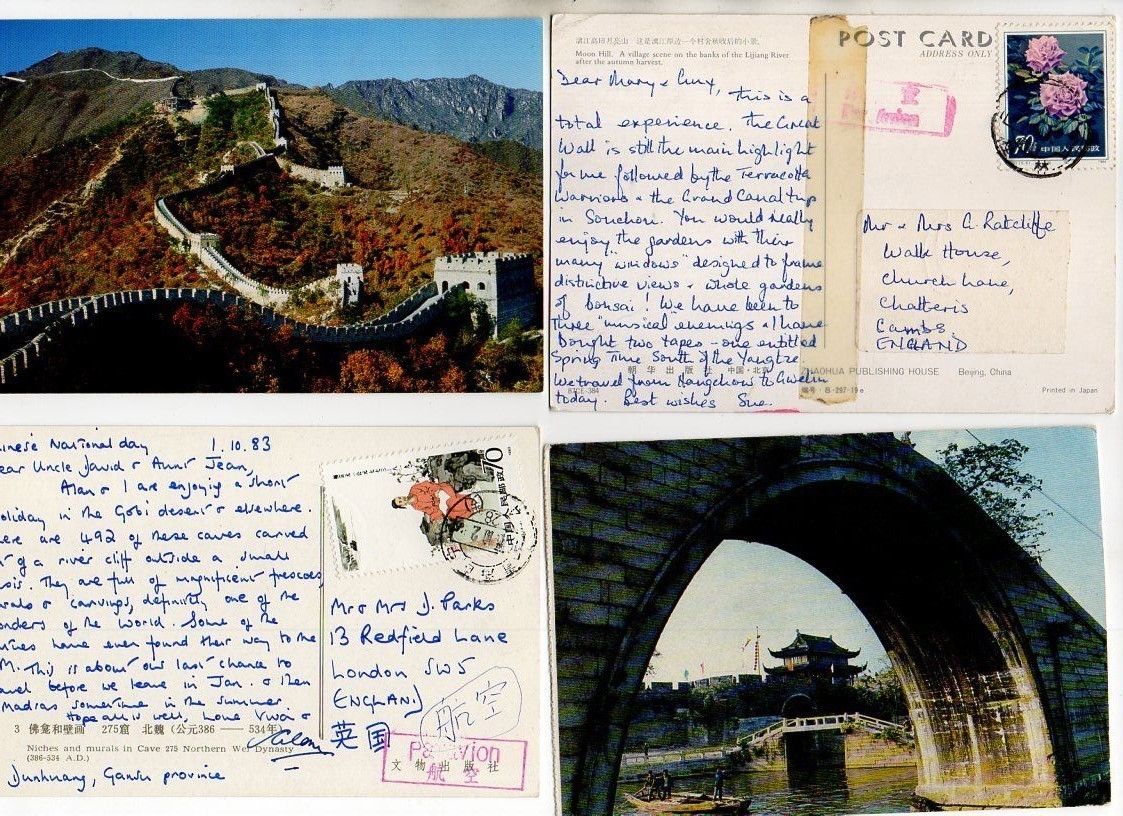 漓江高田月亮山 这是漓江岸边一个村舍秋收后的小景。
Moon Hill. A village scene on the banks of the Lijiang River
after the autumn harvest.
POST CARD
ADDRESS ONLY
Dear Mary &
this is a
total experience. The Great
Wall is still the main highlight
for me followed by the Terracotta
Warriors & the Grand Canal trip
in Souchou. You would really
enjoy the gardens with their
many "windows" designed to frame
distinctive views & whole gardens
of bonsai! We have been to
three "musical evenings & I have
bought two tapes - one entitled
Spring Time South of the Yangtze.
We travel from Hangchow to Gweilin
today. Best wishes Sue.
朝华出版社 中国·北京
ZHAOHUA PUBLISHING HOUSE Beijing, China
Printed in Japan
70
中国人民邮政
Mr & Mrs G. Ratcliffe
Walk House,
Church Lane,
Chatteris
Cambs.
ENGLAND
inese National day 1.10.83
ear Uncle David & Aunt Jean,
Alan & I are enjoying a short
oliday in the Gobi desert & elsewhere.
ere are 492 of these caves carved
of a river cliff outside a small
They are full of magnificent frescoes,
& carvings, definitely one of the
onders of the World. Some of the
have even found their way to the
M. This is about our last chance to
avel before we leave in Jan. & then
Madras sometime in the summer.
Hope all is well, Love Viva &
Alan
3 佛龛和壁画 275窟 北魏(公元386 — 534年)
Niches and murals in Cave 275 Northern Wei Dynasty
(386-534 A.D.)
Dunhuang, Gansu province
Mr & Mrs J. Parks
13 Redfield Lane
London SW5
ENGLAND
英国
航空
Par avion
航空
文物出版社
70
中国人民邮政